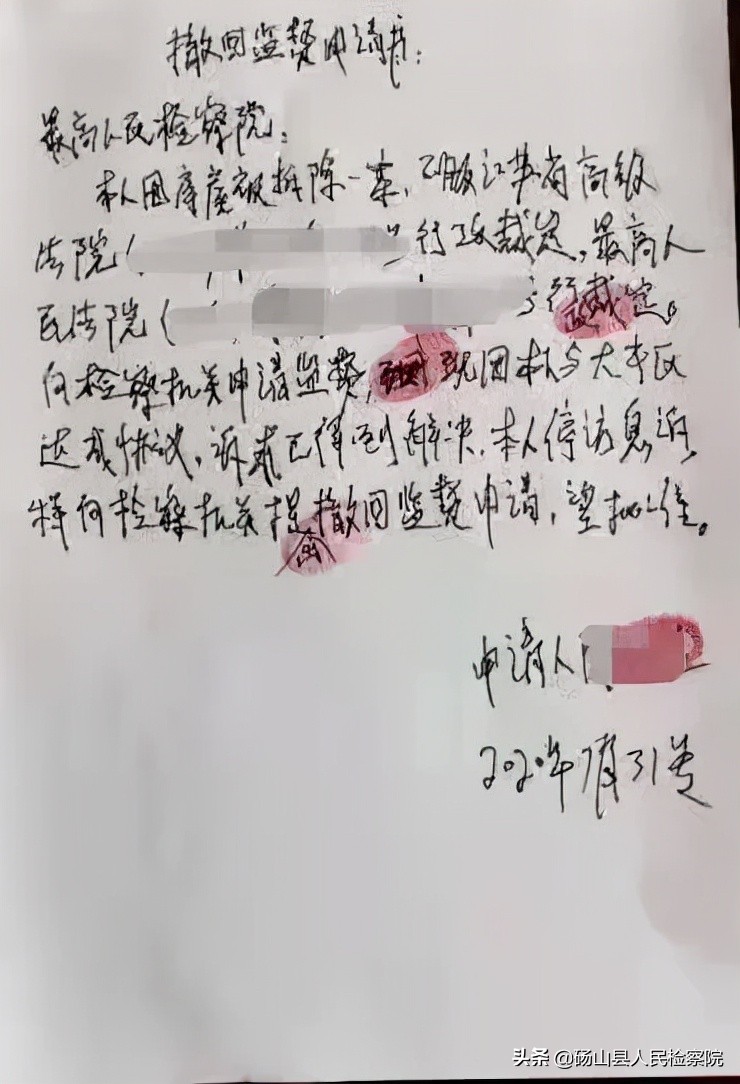 撤回监督申请书:
最高人民检察院:
本人因房屋被拆除一案,不服江苏省高级
法院( 行政裁定,最高人
民法院( 行政裁定。
向检察机关申请监督,现因本人与大丰区
达成协议,诉求已得到解决,本人停访息诉,
特向检察机关提出撤回监督申请,望批准。
申请人
2020年 月31号
头条 @砀山县人民检察院